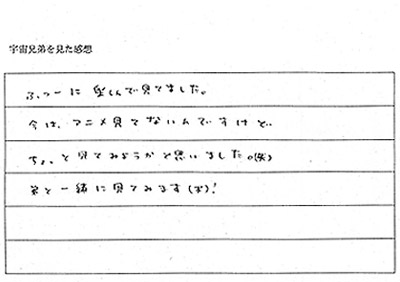 宇宙兄弟を見た感想
ふつーに楽しんで見てました。
今は、アニメ見てないんですけど、
ちょっと見てみようかと思いました。(笑)
弟と一緒に見てみます(笑)!